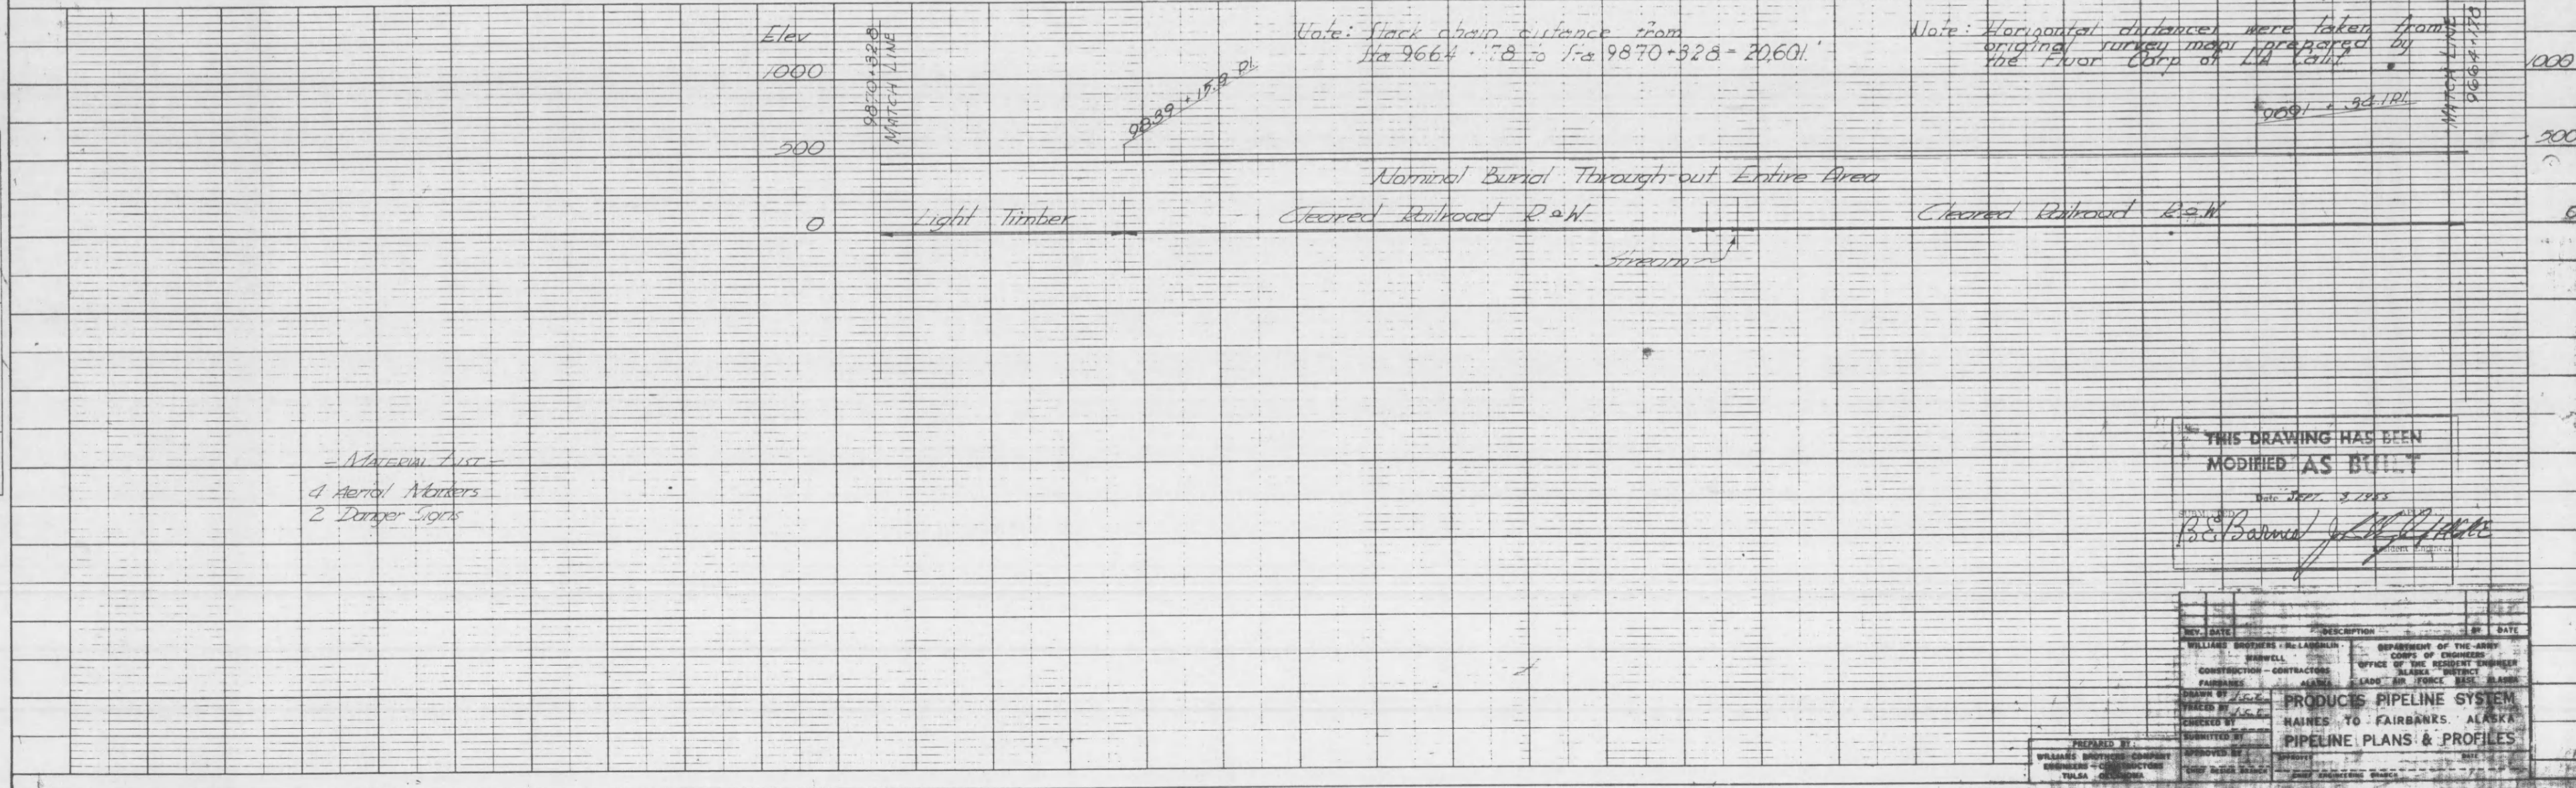 Elev
1000
500
0
9870+328
MATCH LINE
9839+15.2 PI
Note: Slack chain distance from
Sta 9664+178 to Sta 9870+328 = 20,601'
Note: Horizontal distances were taken from
original survey maps prepared by
the Fluor Corp of LA Calif
9691 + 34.1 PI
MATCH LINE
9664+178
1000
500
0
Nominal Burial Through-out Entire Area
Light Timber
Cleared Railroad R.o.W
Cleared Railroad R.o.W
Stream
- MATERIAL LIST -
4 Aerial Markers
2 Danger Signs
THIS DRAWING HAS BEEN
MODIFIED AS BUILT
Date SEPT. 3, 1955
B.E. Barnes
Resident Engineer
REV. DATE DESCRIPTION BY DATE
WILLIAMS BROTHERS · McLAUGHLIN ·
MARWELL
CONSTRUCTION - CONTRACTORS
FAIRBANKS ALASKA
DEPARTMENT OF THE ARMY
CORPS OF ENGINEERS
OFFICE OF THE RESIDENT ENGINEER
ALASKA DISTRICT
LADD AIR FORCE BASE ALASKA
DRAWN BY
TRACED BY
CHECKED BY
SUBMITTED BY
APPROVED BY
CHIEF DESIGN BRANCH
PRODUCTS PIPELINE SYSTEM
HAINES TO FAIRBANKS, ALASKA
PIPELINE PLANS & PROFILES
APPROVED DATE
CHIEF ENGINEERING BRANCH
PREPARED BY:
WILLIAMS BROTHERS COMPANY
ENGINEERS - CONSTRUCTORS
TULSA OKLAHOMA